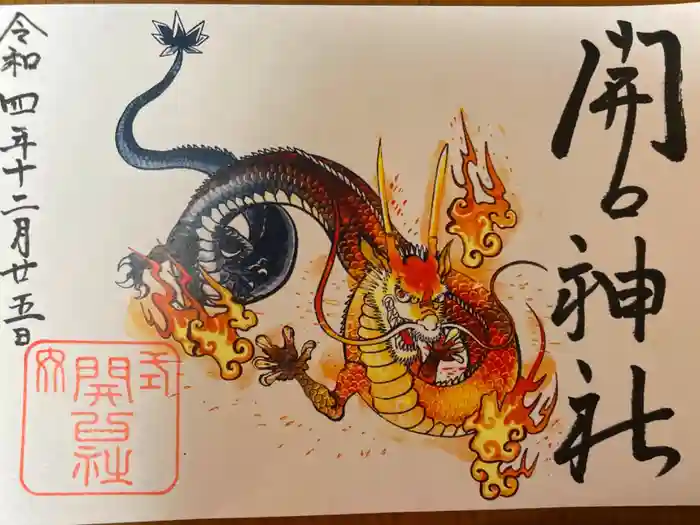 開口神社
令和四年十二月廿五日
開口社